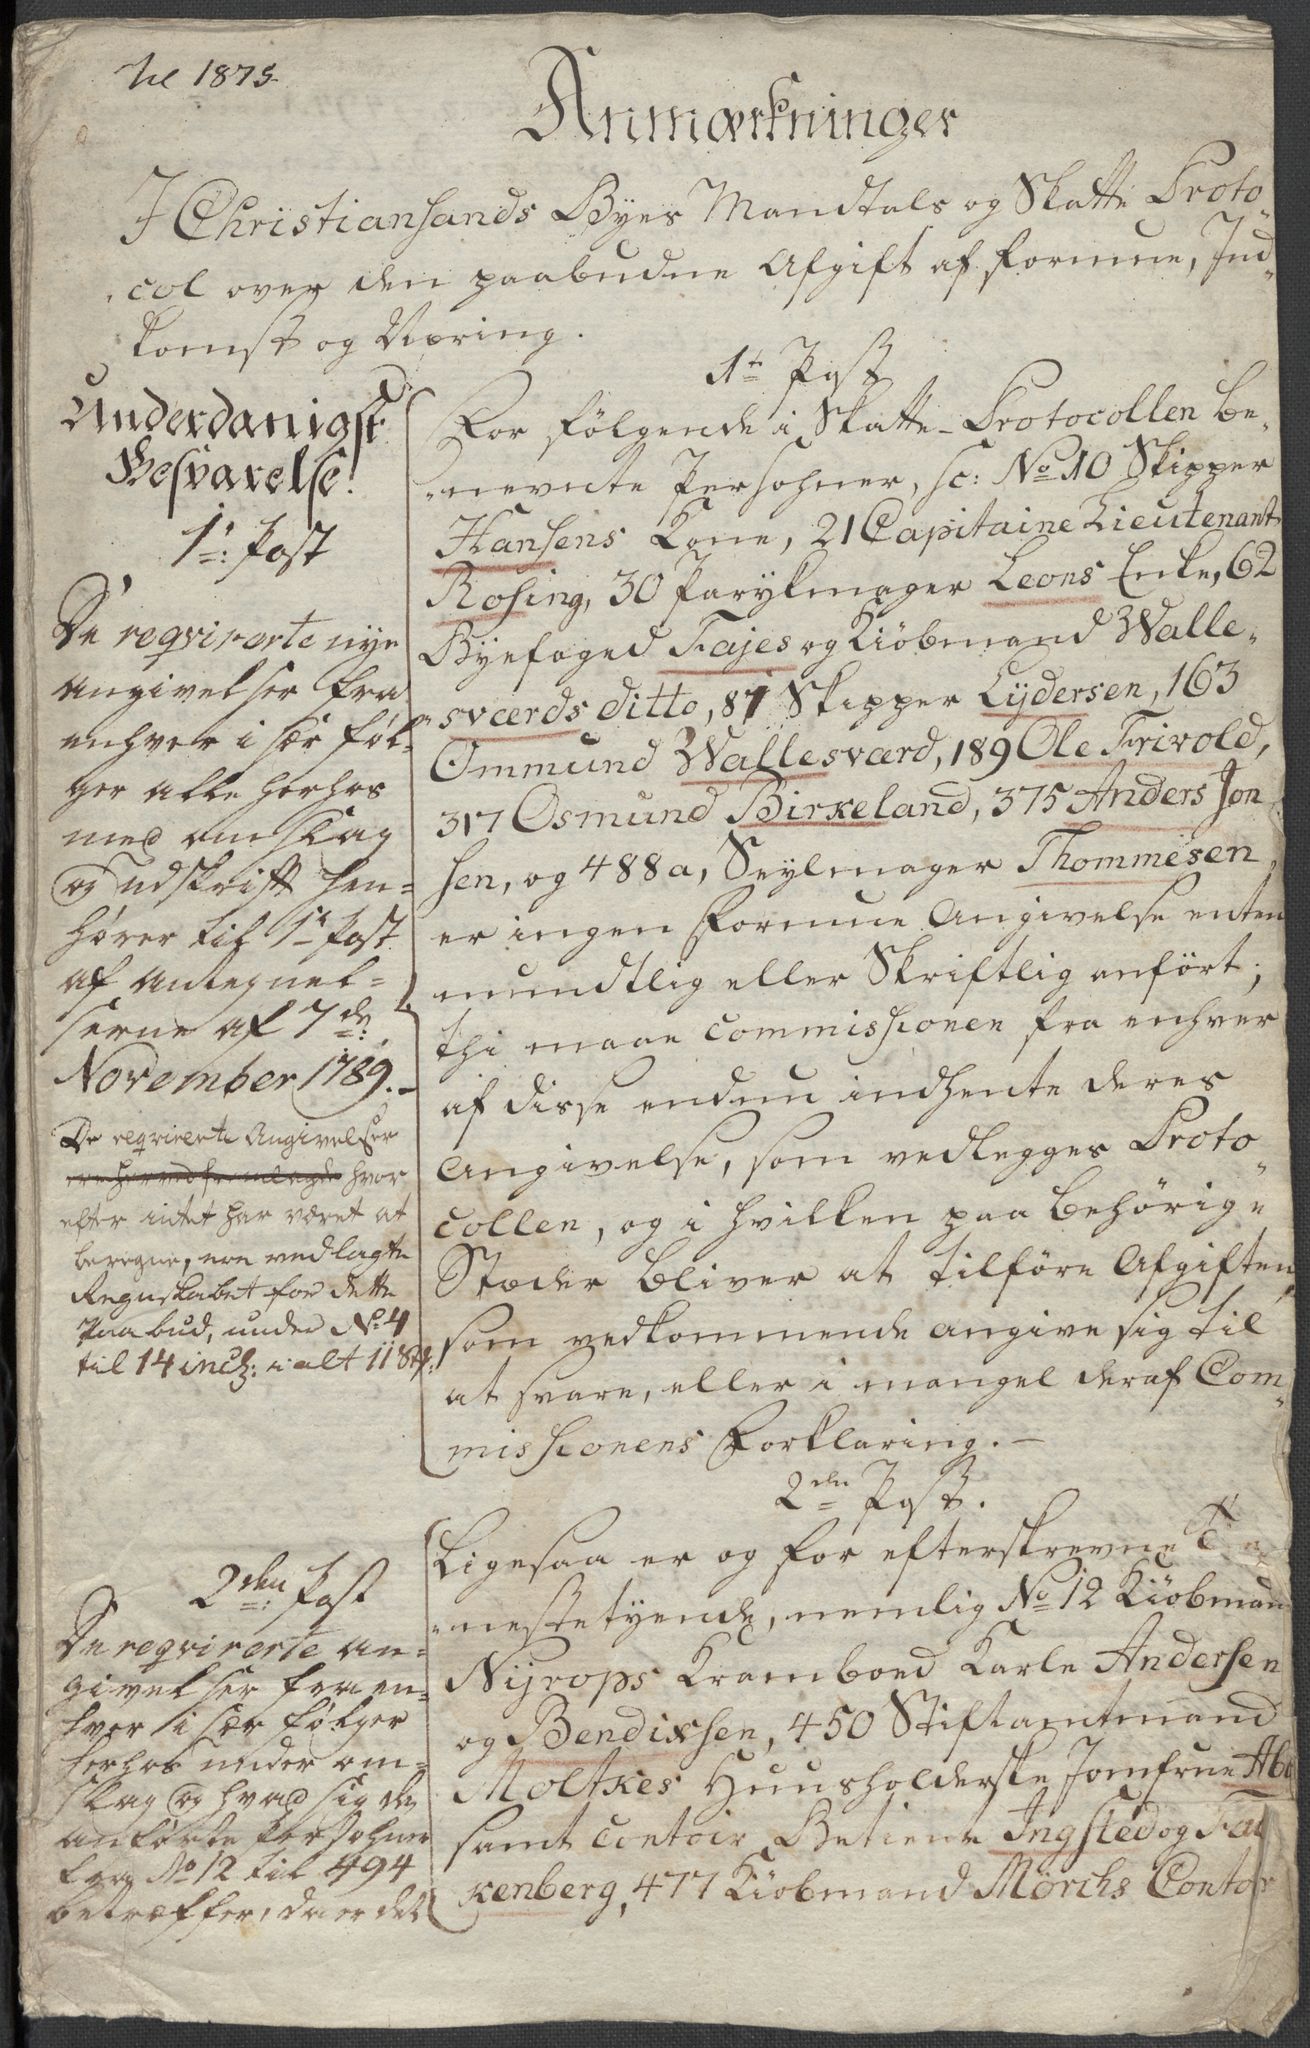 1875
Anmærkninger
I Christiansands Byes Mandtals og Skatte Proto„
„col over den paabudne Afgift af Formue, Ind„
komst og Næring.
1te Post
For følgende i Skatte-Protocollen be„
„nevnte Persohner, sc: No 10 Skipper
Hansens Kone, 21 Capitaine Lieutenant
Rosing, 30 Parykmager Leons Enke, 62
Byefoged Fajes og Kiøbmand Walle„
„sværds ditto, 87 Skipper Lydersen, 163
Ommund Wallesværd, 189 Ole Frivold,
317 Osmund Birkeland, 375 Anders Jon
sen, og 488a, Seylmager Thommesen,
er ingen Formue Angivelse enten
mundtlig eller Skriftlig anført;
thi maae Commissionen fra enhver
af disse endnu indhente deres
Angivelse, som vedlegges Proto„
collen, og i hvilken paa behørige
Stæder bliver at tilføre Afgiften,
som vedkommende angive sig til
at svare, eller i mangel deraf Com„
missionens Forklaring.-
2den Post.
Ligesaa er og for efterskrevne
„nestetyende, nemlig No 12 Kiøbmand
Nyrops Kramboed Karle Andersen
og Bendixsen, 450 Stiftamtmand
Moltkes Huusholderske Jomfrue
samt Contoir Betiente Ingsted og Fal
kenberg, 477 Kiøbmand Mørchs Contor
Underdanigst
Besvarelse.
1te: Post
De reqvirerte nye
Angivelser fra
enhver i sær føl-
ger alle herhos
med omslag
og udskrift hen=
hører til 1te Post
af Antegnel=
serne af 7de:
November 1789.-
De reqvirerte Angivelser
hvor
efter intet har været at
beregne, ere vedlagte
Regnskabet for dette
Paabud, under No. 4
til 14 incl: i alt 11 Stk:
2den: Post
De reqvirerte an=
givelser fra en=
hver i sær følger
herhos under om=
slag og hvad sig de
anførte Persohner
fra No 12 til 494
betræffer, da er det